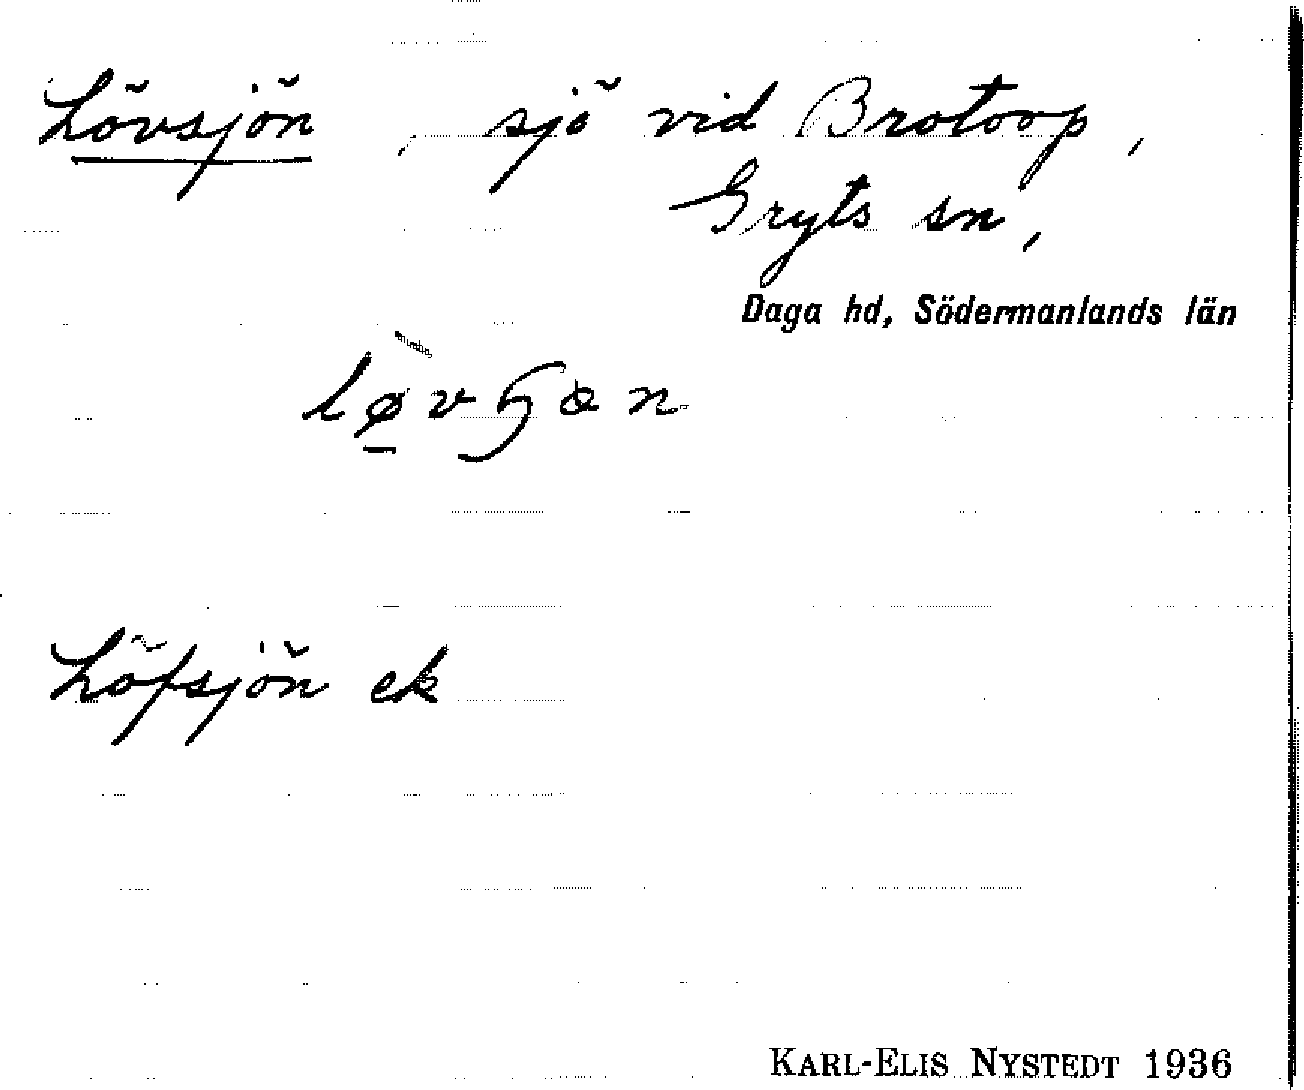 Lövsjön, sjö vid Brotorp,
Gryts sn,
Daga hd, Södermanlands län
Löfsjön ek
KARL-ELIS NYSTEDT 1936